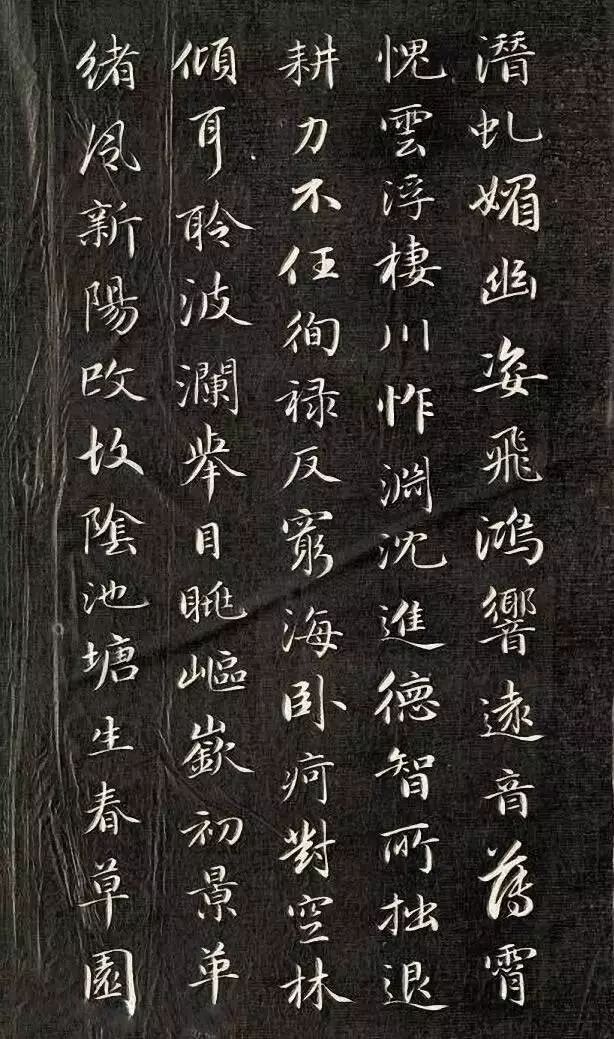 潛虬媚幽姿飛鴻響遠音薄霄
愧雲浮棲川怍淵沈進德智所拙退
耕力不任徇祿反窮海卧疴對空林
傾耳聆波瀾舉目眺嶇嶔初景革
緒風新陽改故陰池塘生春草園